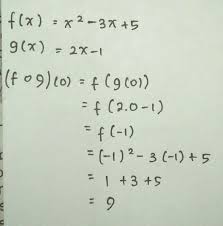 f(x) = x² - 3x + 5
g(x) = 2x - 1
(f o g)(0) = f(g(0))
= f(2.0 - 1)
= f(-1)
= (-1)² - 3(-1) + 5
= 1 + 3 + 5
= 9